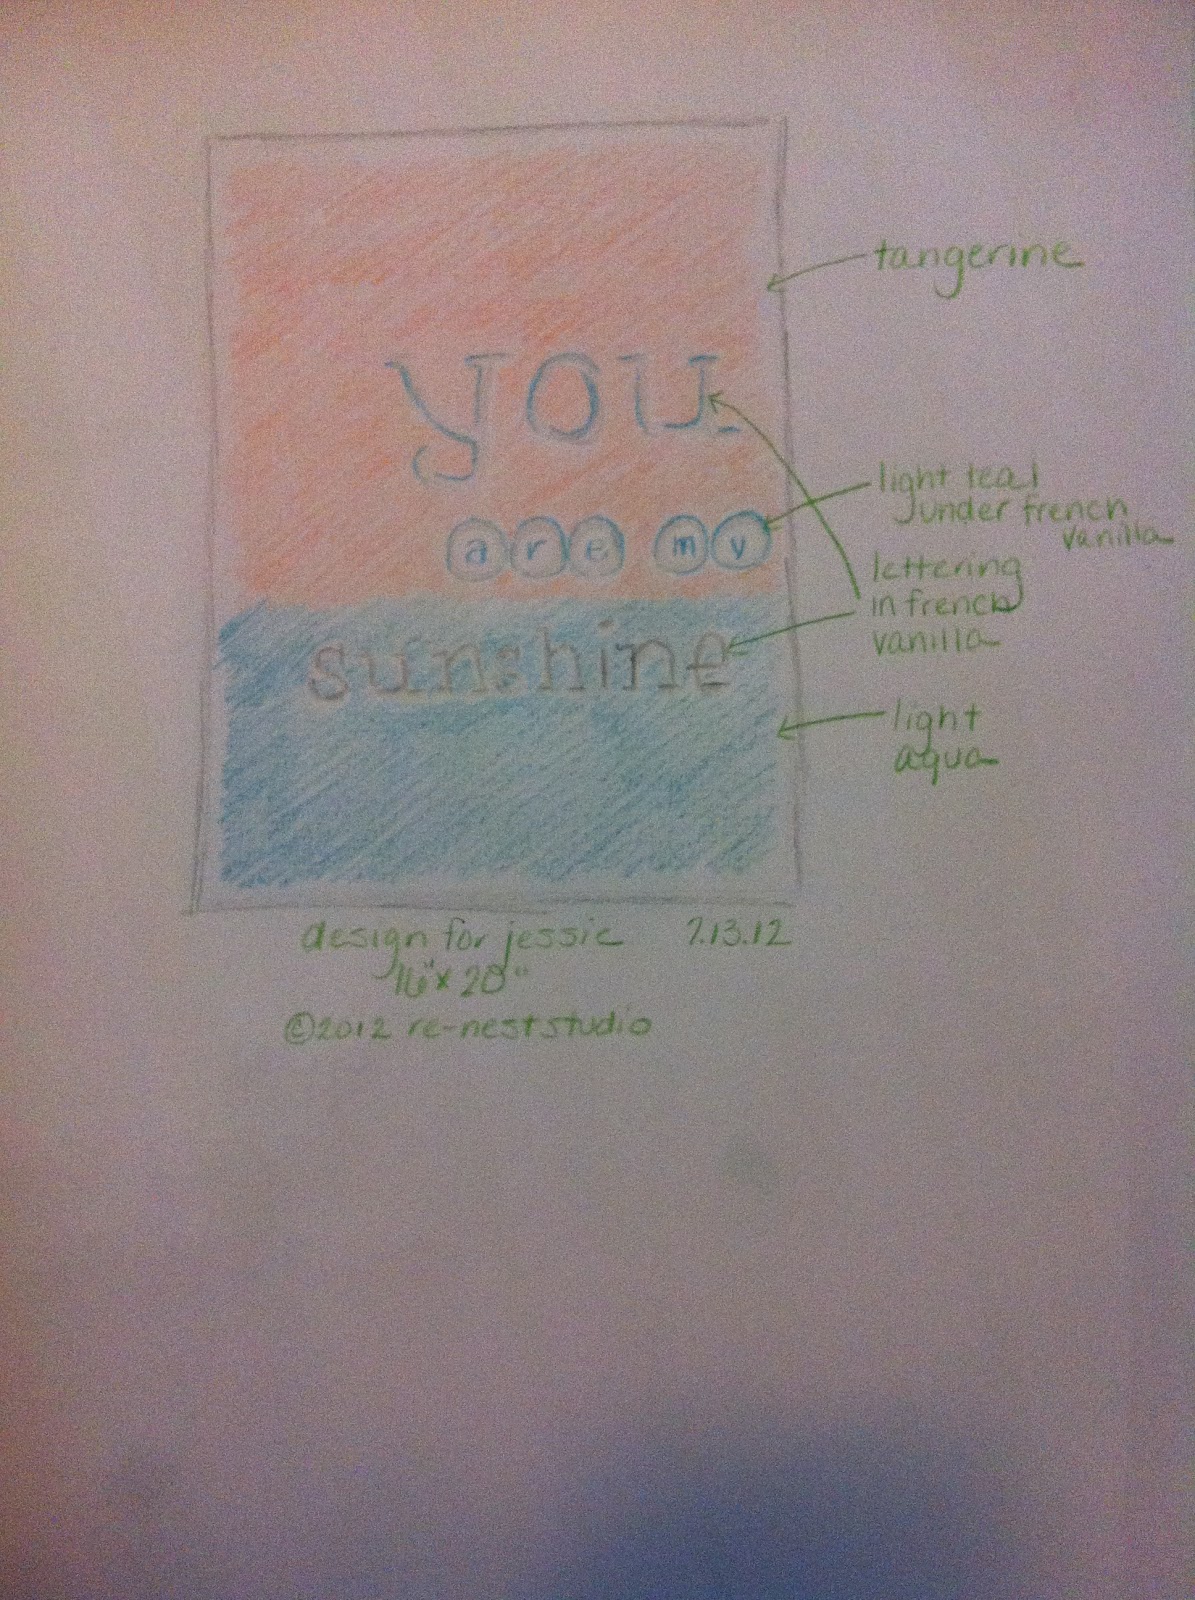 tangerine
you
light teal
under french
vanilla
are my
lettering
in french
vanilla
sunshine
light
aqua
design for jessie 7.13.12
16" x 20"
©2012 re-nest studio